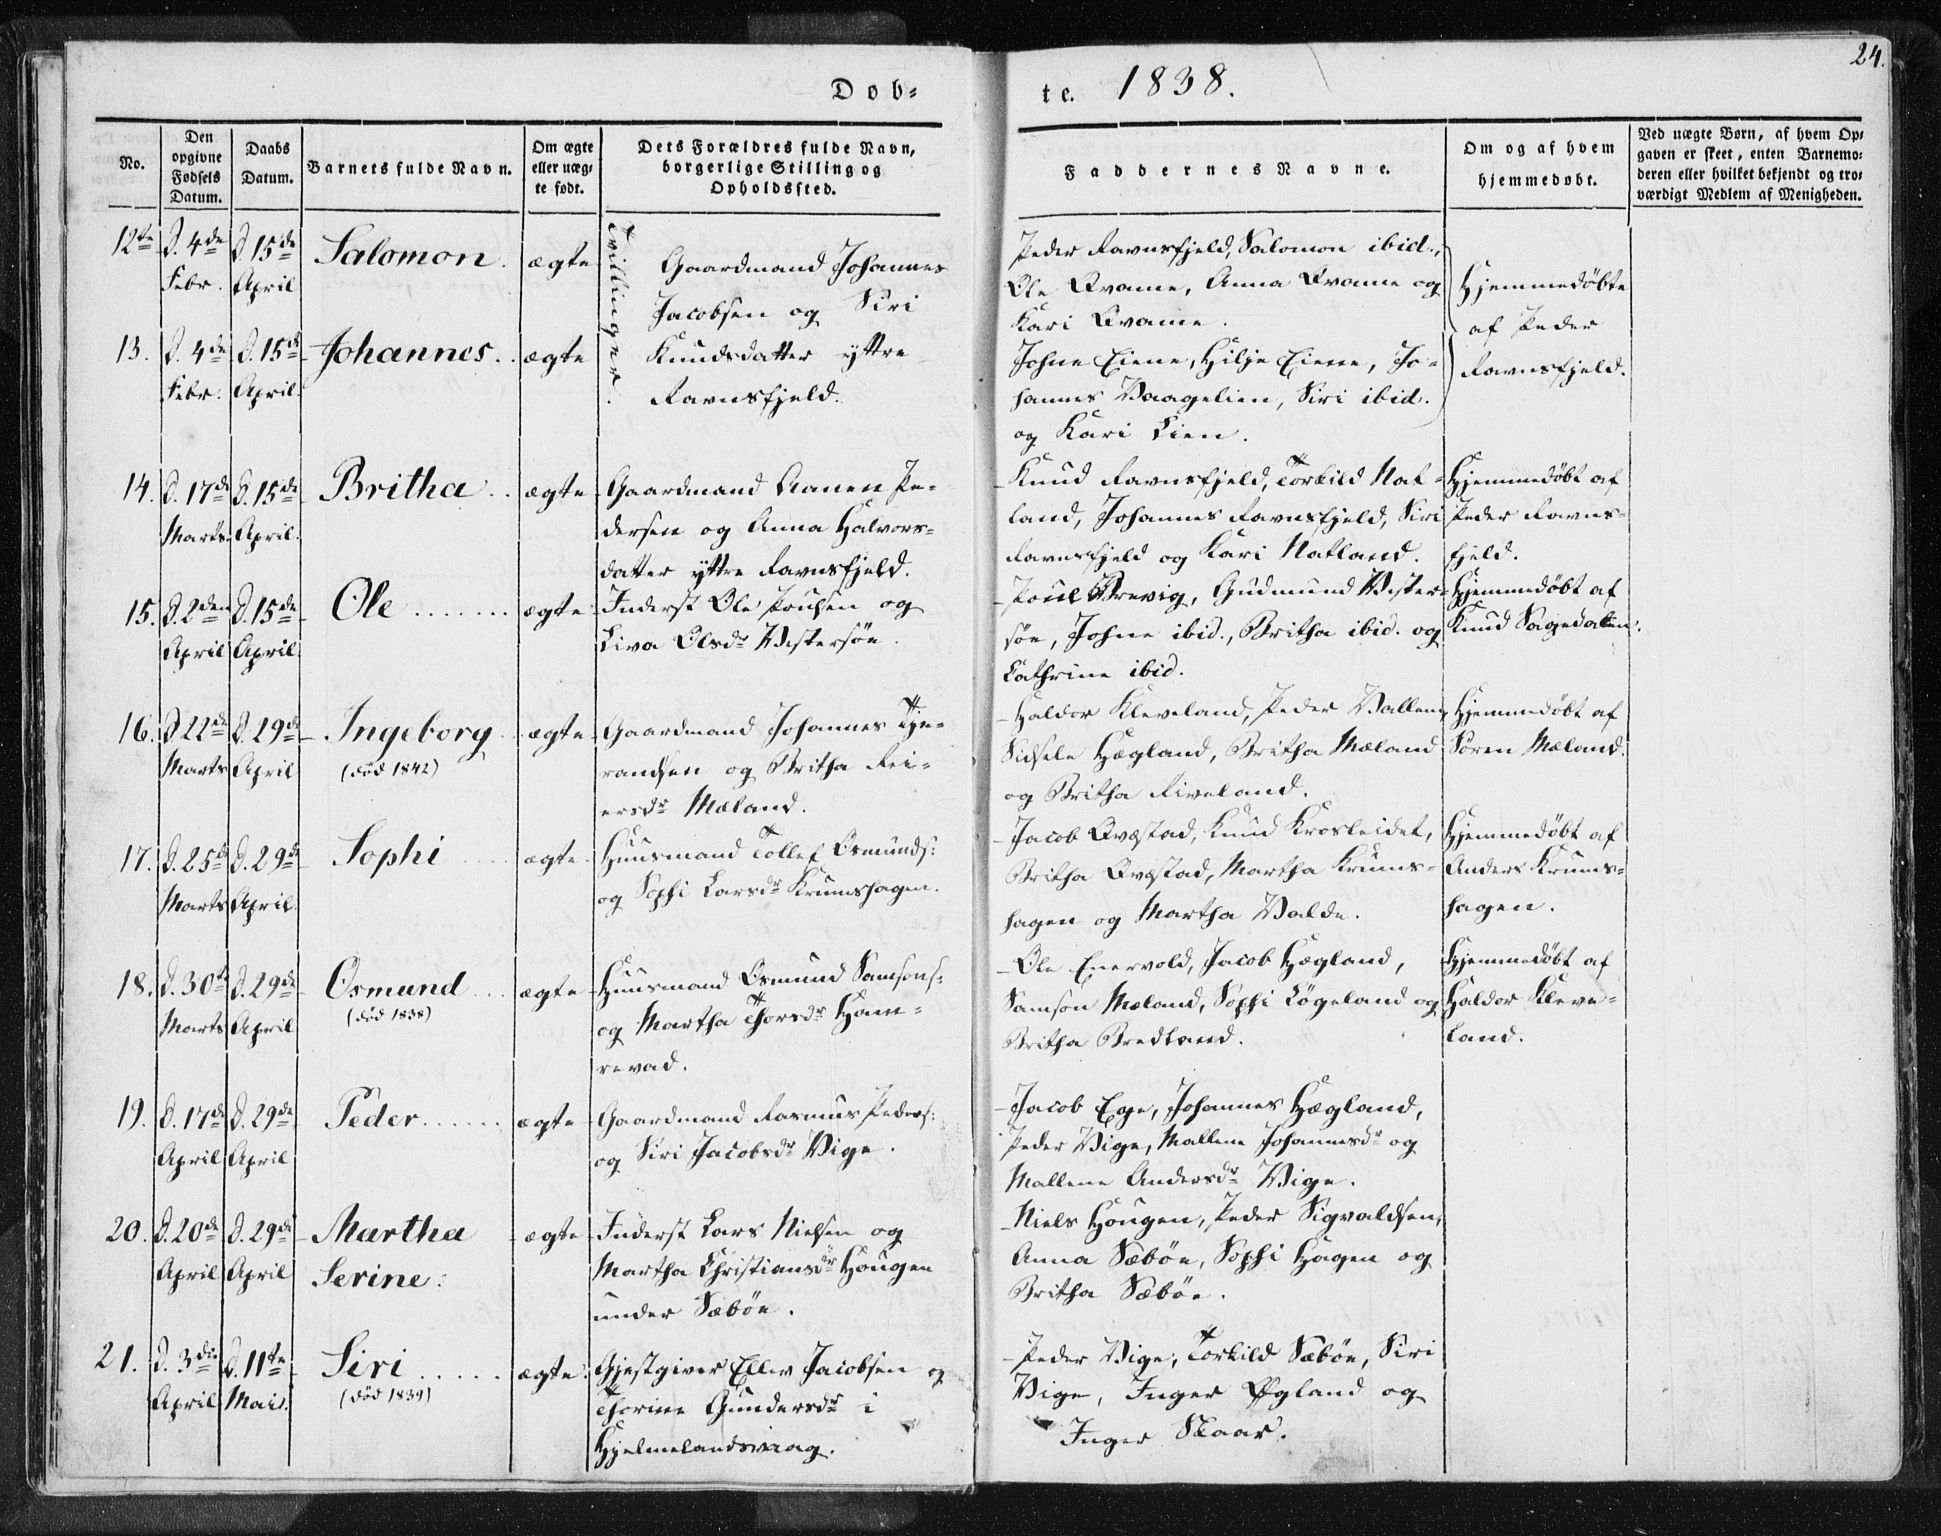 24.
Døb=
te. 1838.
No.
Den opgivne Fødsels Datum.
Daabs Datum.
Barnets fulde Navn.
Om ægte eller uæg= te født.
Dets Forældres fulde Navn, borgerlige Stilling og Opholdssted.
Faddernes Navne.
Om og af hvem hjemmedøbt.
Ved uægte Børn, af hvem Op= gaven er skeet, enten Barnemo= deren eller hvilket bekjendt og tro= værdigt Medlem af Menigheden.
12te D. 4de Febr. D. 15de April Salomon. ægte
Tvillinger.
Gaardmand Johannes
Jacobsen og Siri
Knudsdatter yttre
Ravnsfjeld.
Peder Ravnsfjeld, Salomon ibid.,
Ole Qvame, Anna Qvame og
Kari Qvame.
Hjemmedøbte
af Peder
Ravnsfjeld.
13. D. 4de Febr. D. 15de April. Johannes.. ægte
Johne Eiene, Hilje Eiene, Jo=
hannes Vaagelien, Siri ibid.
og Kari Lien.
14. D. 17de Marts. D. 15de April. Britha.. ægte
Gaardmand Aanen Pe=
dersen og Anna Halvors=
datter yttre Ravnsfjeld.
Knud Ravnsfjeld, Torkild Nat=
land, Johannes Ravnsfjeld, Siri
Ravnsfjeld og Kari Natland.
Hjemmedøbt af
Peder Ravns=
fjeld.
15. D. 2den April D. 15de April. Ole ....... ægte
Inderst Ole Poulsen og
Liva Olsdr Vestersøe
Poul Brevig, Gudmund Vester=
søe, Johne ibid., Britha ibid. og
Cathrine ibid.
Hjemmedøbt af
Knud Sagedalen.
16. D 22de Marts D. 29de April Ingeborg ægte
(død 1842)
Gaardmand Johannes Tje=
randsen og Britha Rei=
ersdr Mæland.
Haldor Kleveland, Peder Vallem,
Sidsele Hægland, Britha Mæland
og Britha Riveland.
Hjemmedøbt af
Søren Mæland.
17. D. 25de Marts D. 29de April. Sophi ægte
Huusmand Tollef Osmunds:
og Sophi Larsdr Krumshagen.
Jacob Qvæstad, Knud Krosleidet,
Britha Qvæstad, Martha Krums=
hagen og Martha Valde.
Hjemmedøbt af
Anders Krums=
hagen.
18. D. 30te Marts D. 29de April Osmund ægte
(død 1838)
Huusmand Osmund Samsons:
og Martha Thorsdr Hom=
revad.
Ole Enervold, Jacob Hægland,
Samson Mæland, Sophi Løgeland og
Britha Bredland.
Hjemmedøbt af
Haldor Kleve=
land.
19. D. 17de April D. 29de April Peder...... ægte
Gaardmand Rasmus Peders:
og Siri Jacobsdr Vige.
Jacob Ege, Johannes Hægland,
Peder Vige, Mallene Johannesdr og
Mallene Andersdr Vige.
20. D. 20de April D. 29de April Martha Serine: ægte
Inderst Lars Nielsen og
Martha Christiansdr Hougen
under Sæbøe.
Niels Hougen, Peder Sigvaldsen,
Anna Sæbøe, Sophi Hagen og
Britha Sæbøe.
21. D. 3die April D. 11te Mai. Siri ..... ægte.
(død 1839)
Gjestgiver Ellev Jacobsen og
Thorine Gundersdr i
Hjelmelandsvaag.
Peder Vige, Torkild Sæbøe, Siri
Vige, Inger Øgland og
Inger Skaar.